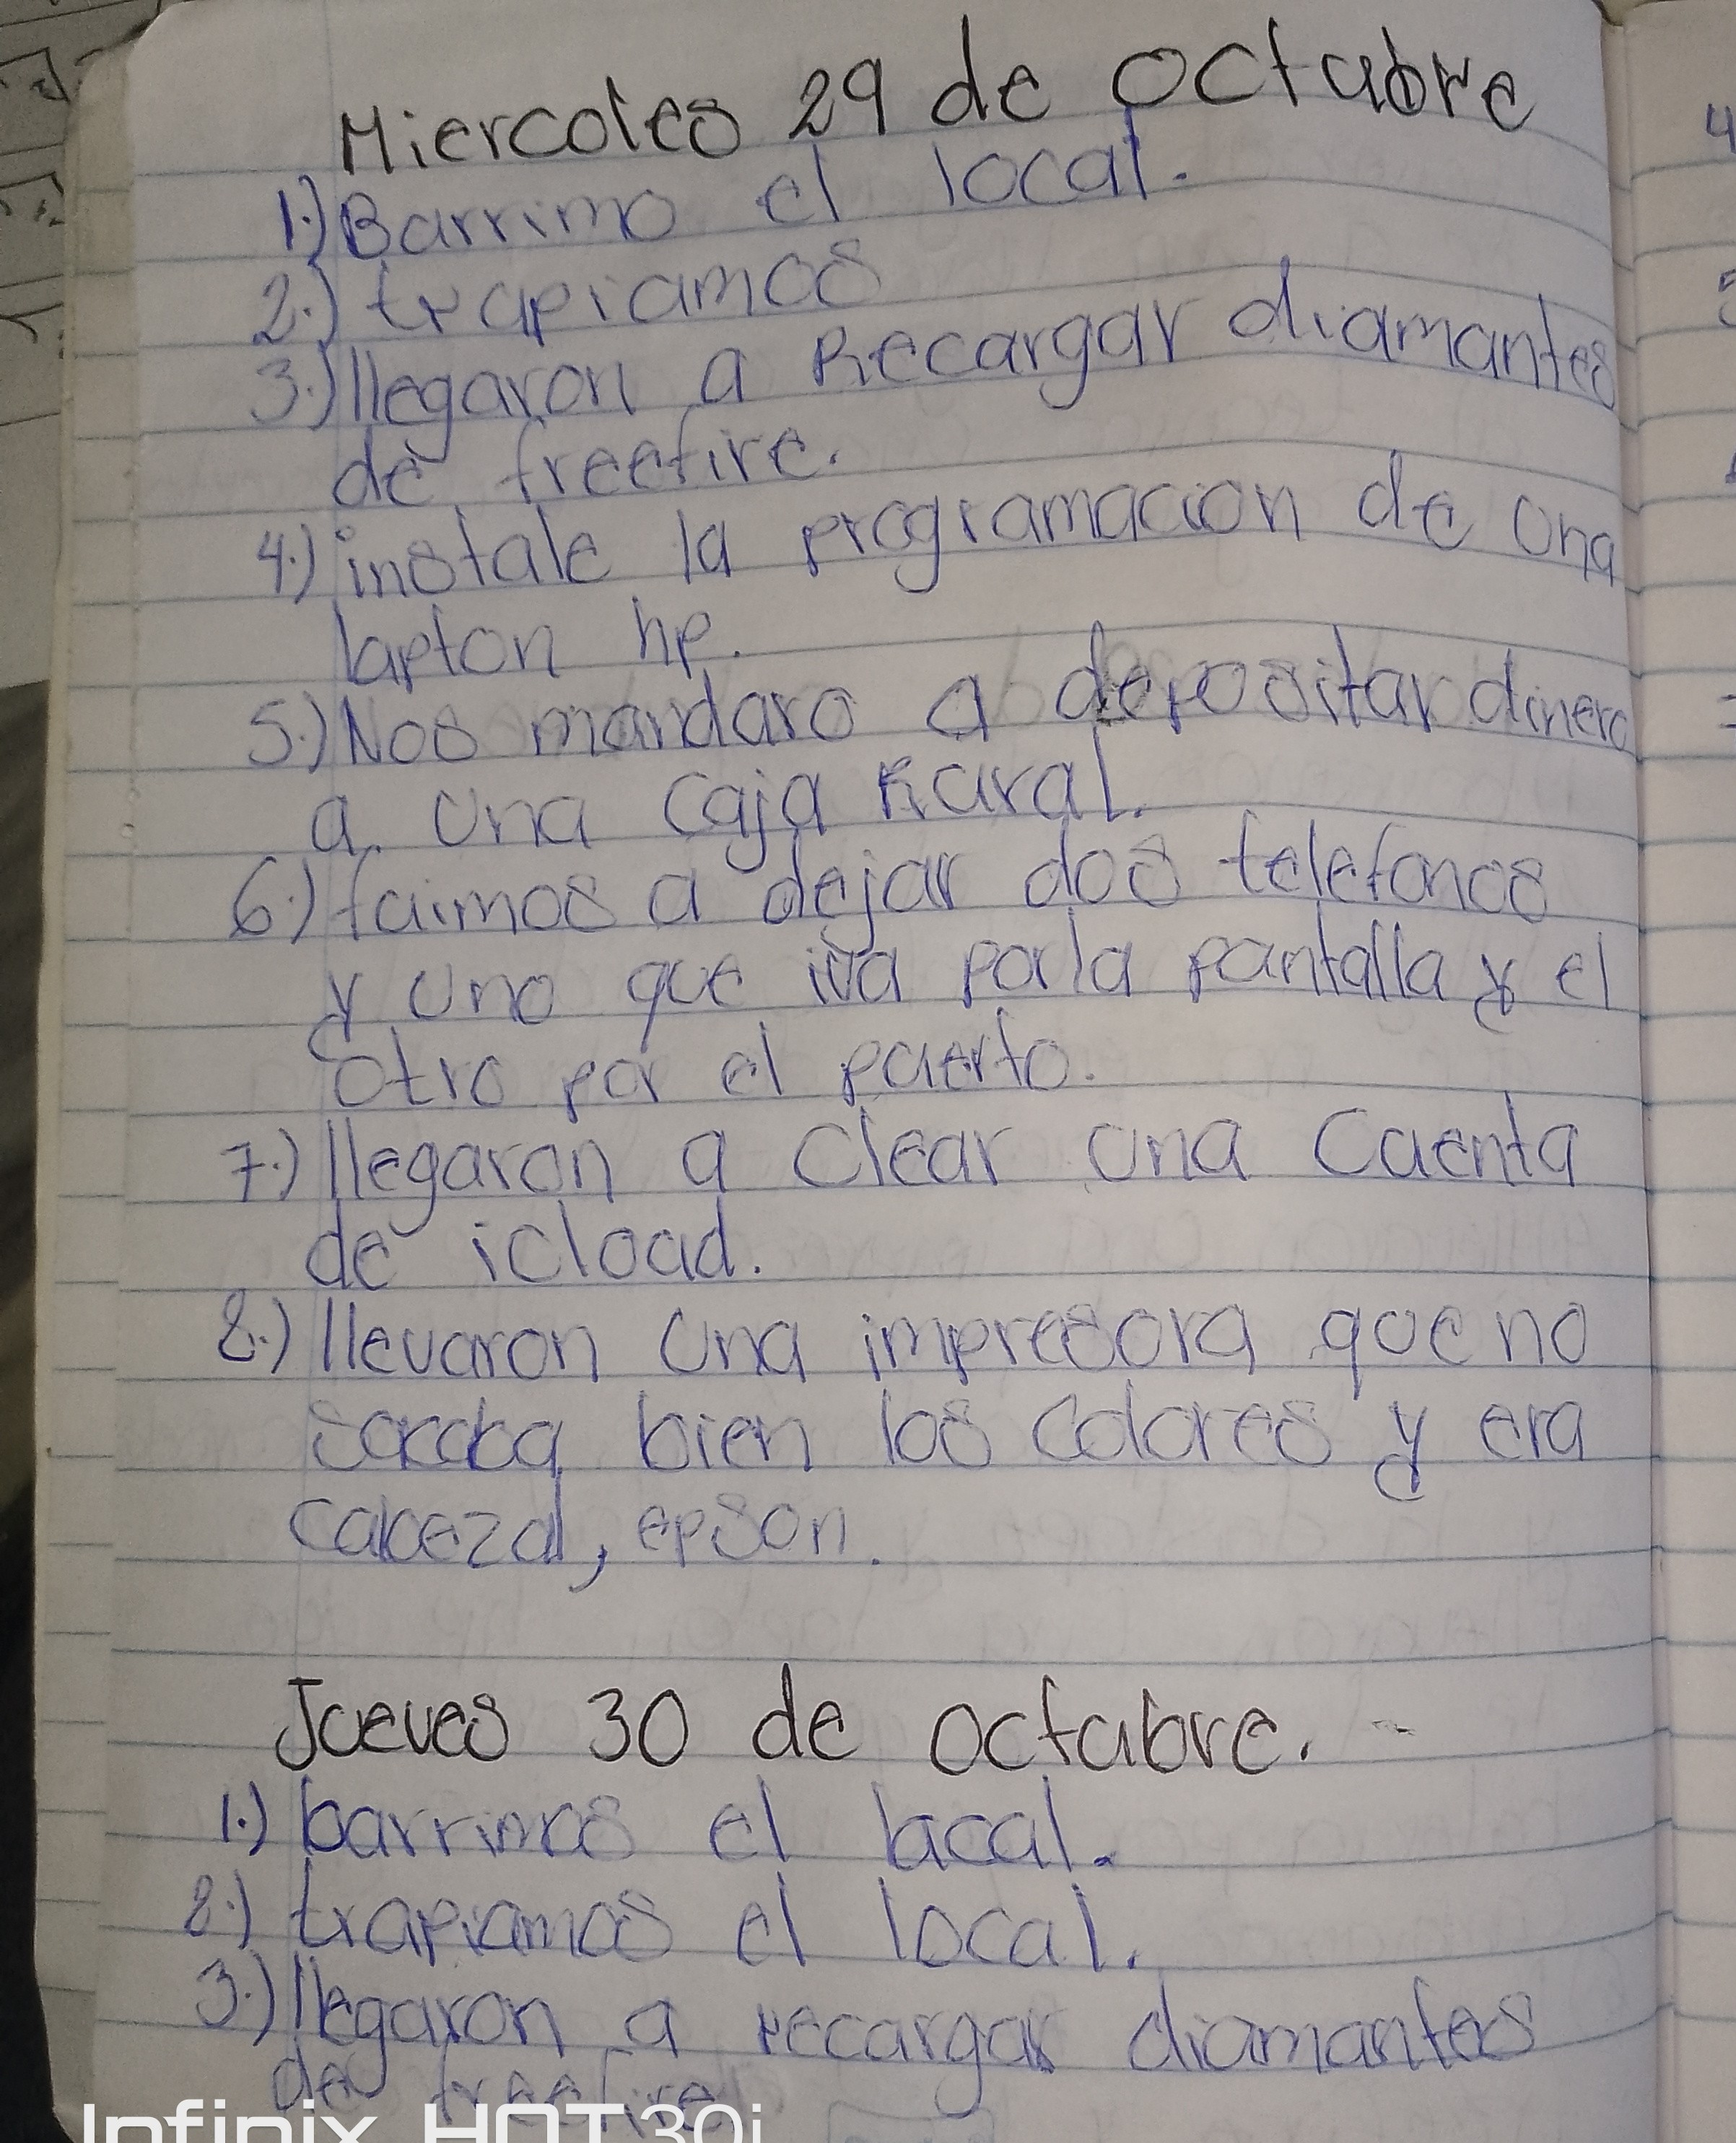 Miercoles 29 de octubre
1.) Barrimo el local.
2.) trapiamos
3.) llegaron a Recargar diamantes
de freefire.
4.) instale la programacion de una
lapton hp.
5.) Nos mandaro a depositar dinero
a una caja Rural.
6.) fuimos a dejar dos telefonos
y uno que iva por la pantalla y el
otro por el puerto.
7.) llegaron a Clear una Cuenta
de icloud.
8.) llevaron una impresora que no
sacaba bien los colores y era
cabezal, epson.
Jueves 30 de octubre.
1.) barrimos el local.
2.) trapiamos el local.
3.) llegaron a recargar diamantes
de freefire
Infinix HOT 30i